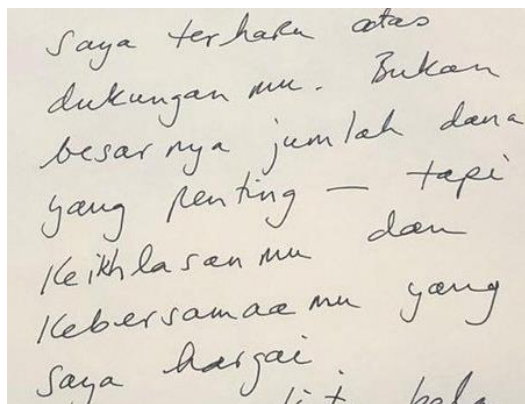 saya terharu atas
dukungan mu. Bukan
besar nya jumlah dana
yang penting — tapi
Keikhlasan mu dan
Kebersamaa mu yang
saya hargai.